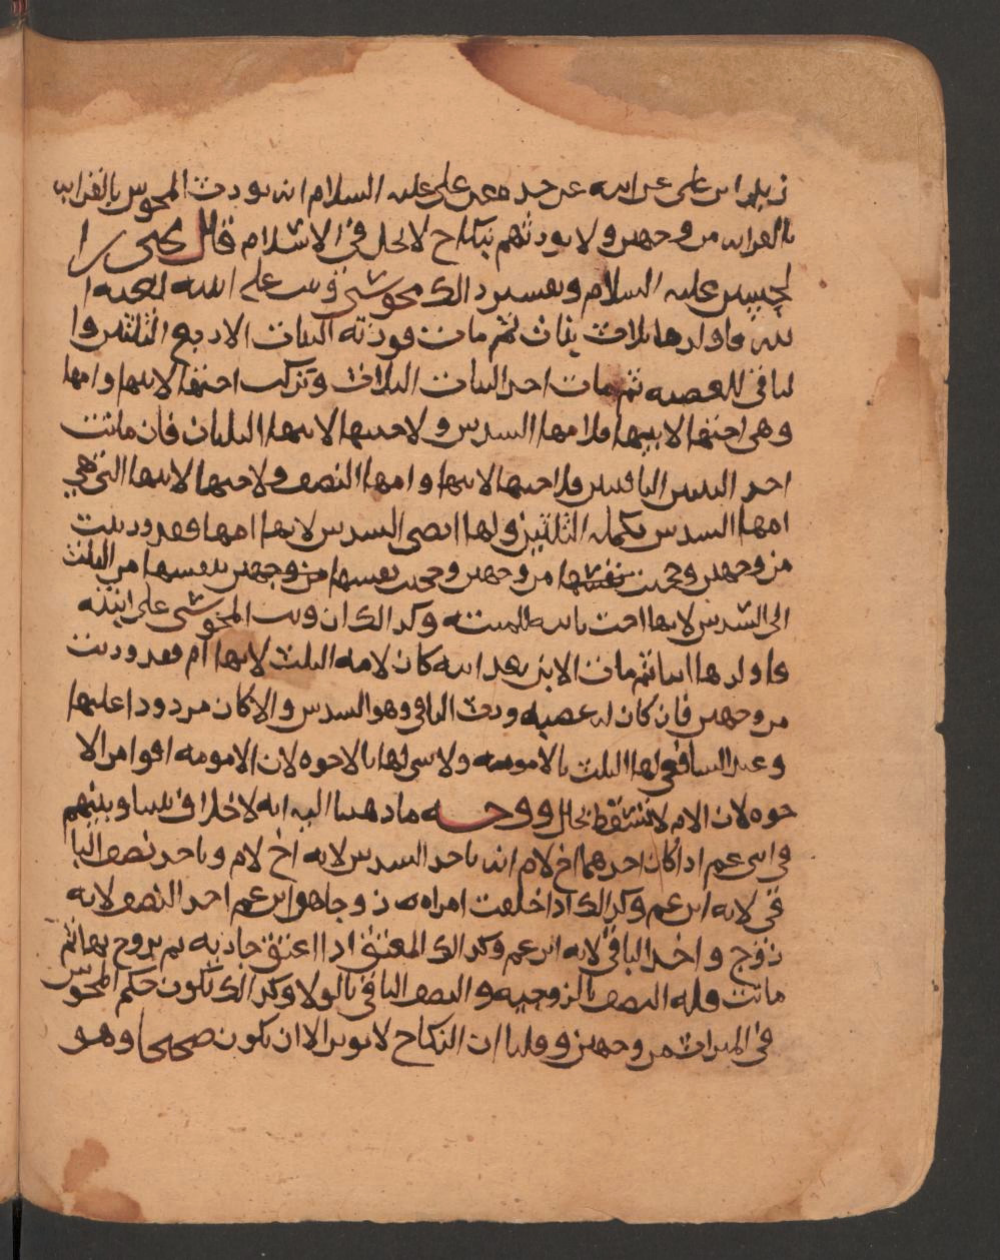 زيد ابن علي عن ابيه عن جده عن علي عليه السلام انه يورث المجوس بالقرابه
بالقرابه من وجهين ولا يورثهم بنكاح لا يحل في الاسلام قال يحيى بن ا
لحسين عليه السلام وتفسير ذالك مجوسي وثب على ابنته
فاولدها ثلاث بنات ثم مات فورثته البنات الاربع الثلثين وا
لباقي للعصبه ثم مات احد البنات الثلاث وتركت اختها لابيها وامها
وهي اختها لابيها فلامها السدس ولاختيها لابيها الثلثان فان ماتت
احد البنتين الباقيتين فلاختها لابيها وامها النصف ولاختها لابيها التي هي
امها السدس تكمله الثلثين ولها ايضى السدس لانها امها فقد ورثت
من وجهين وحجبت نفسها من وجهين وحجبت نفسها من وجهين بنفسها من الثلث
الى السدس لانها اخت ثانيه للميته وكذالك ان وثب المجوسي على ابنته
فاولدها ابنا ثم مات الابن بعد ابيه كان لامه الثلث لانها ام فقد ورثت
من وجهين فان كان له عصبه ورث الباقي وهو السدس والا كان مردودا عليها
وعند الشافعي لها الثلث بالامومه ولا شي لها بالاخوه لان الامومه اقوا من الا
خوه لان الام لا تسقط بحال ووجـــه ما ذهبنا اليه انه لا خلاف بيننا وبينهم
في ابني عم اذا كان احدهما اخ لام انه ياخذ السدس لانه اخ لام وياخذ نصف البا
قي لانه ابن عم وكذالك اذا خلفت امراه زوجا هو ابن عم اخذ النصف لانه
زوج واخذ الباقي لانه ابن عم وكذالك المعتق اذا اعتق جاريه ثم تزوج بها ثم
ماتت فله النصف بالزوجيه والنصف الباقي بالولا وكذالك تكون حكم المجوس
في الميراث من وجهين وقلنا ان النكاح لا يورث الا ان يكون صحيحا وهو